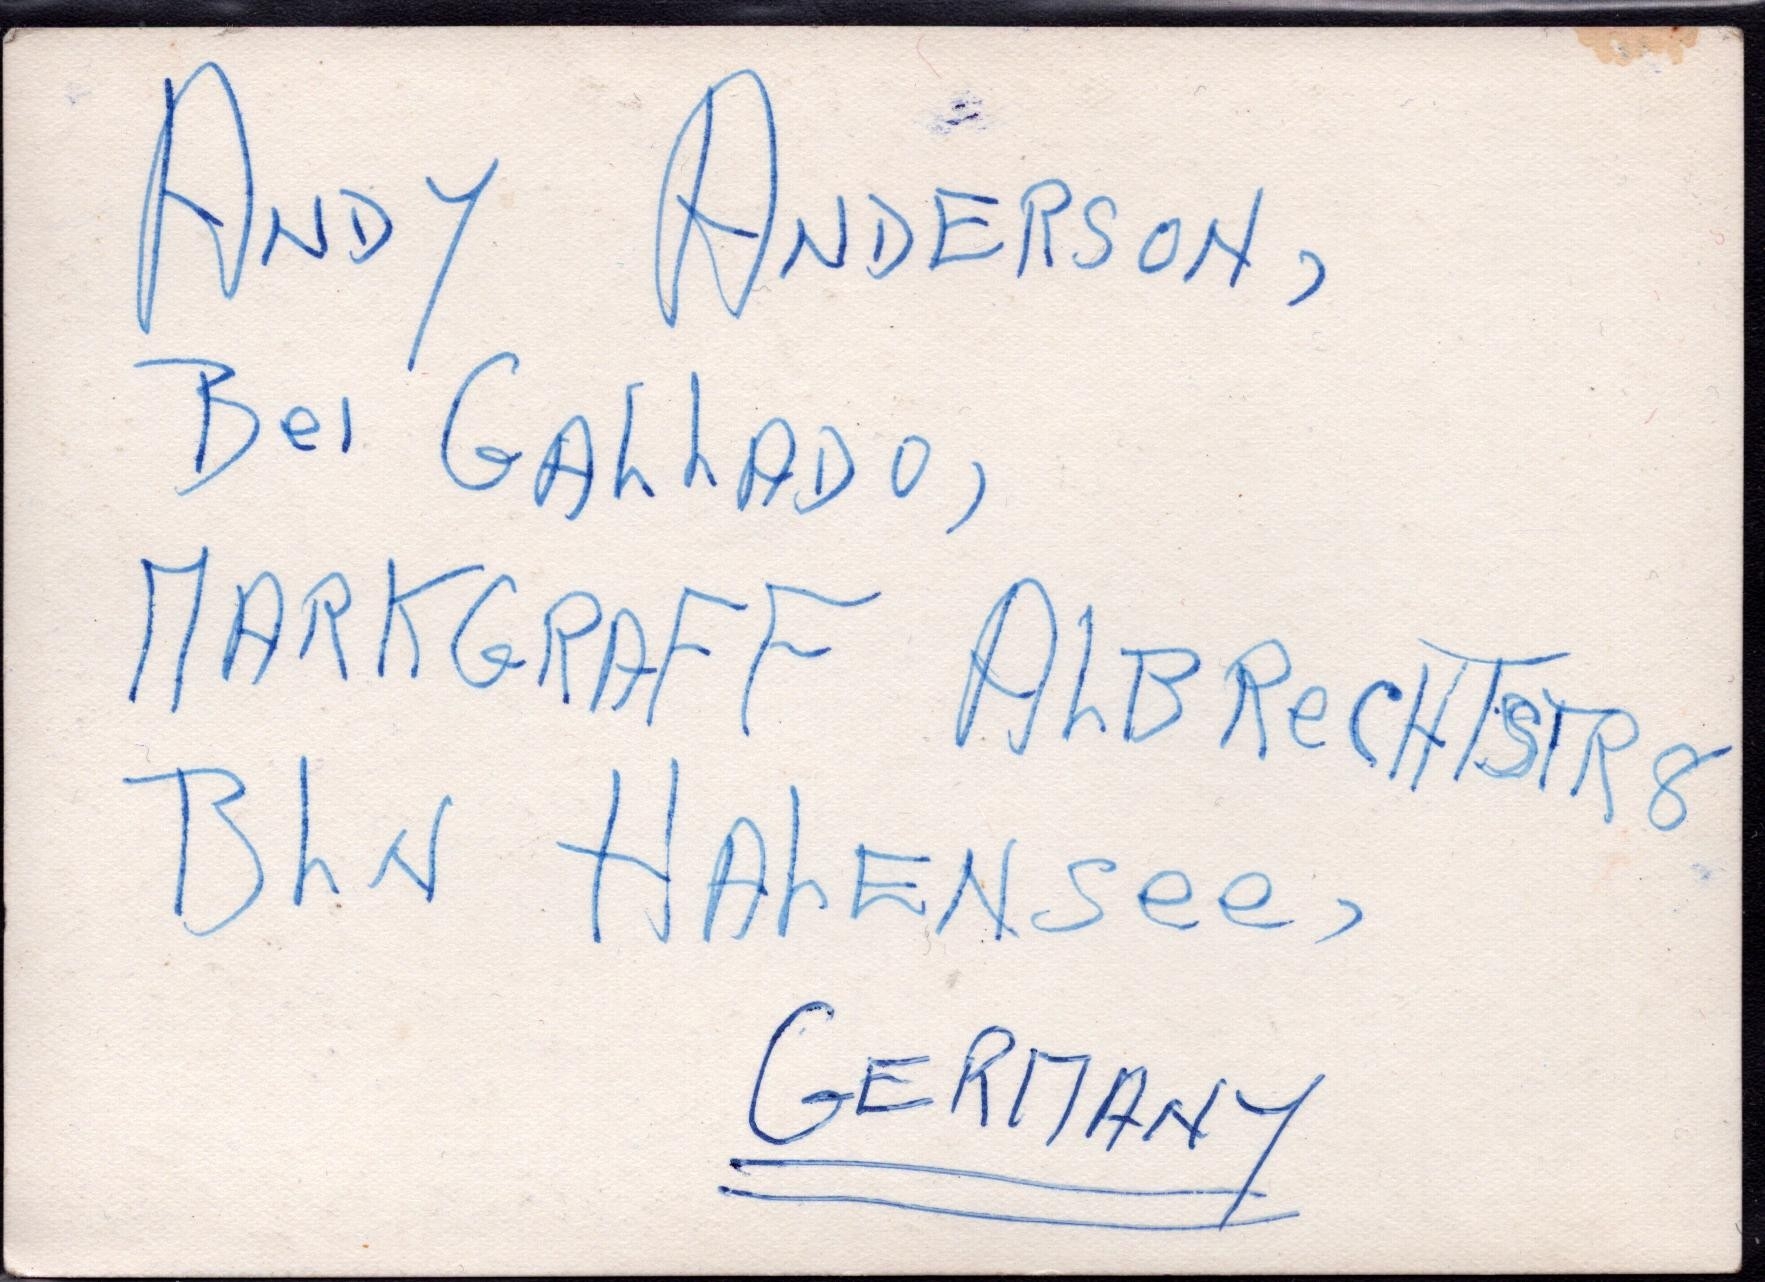 Andy Anderson,
Bei Gallado,
Markgraff Albrechtstr 8
Bln Halensee,
Germany